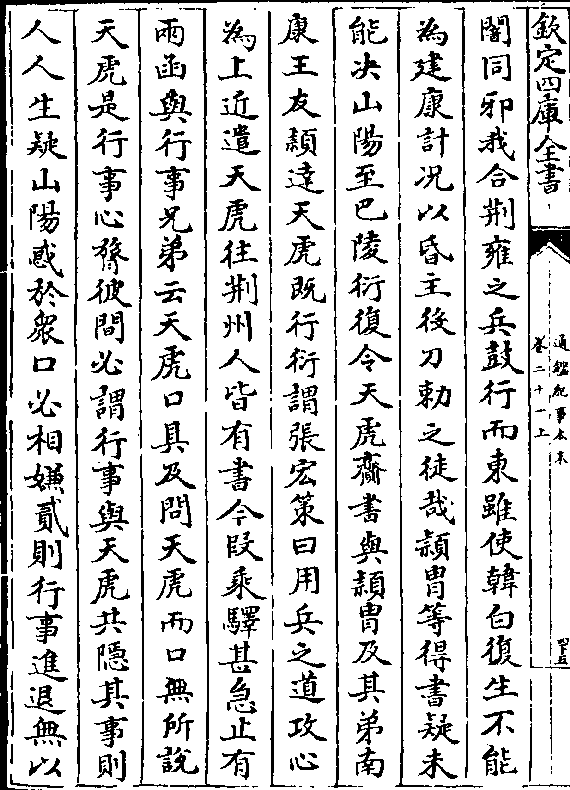 欽定四庫全書
通鑑紀事本末
卷二十一上
闇同邪我合荆雍之兵鼓行而東雖使韓白復生不能
為建康計况以昏主役刀勅之徒哉頴胄等得書疑未
能决山陽至巴陵衍復令天虎齎書與頴胄及其弟南
康王友頴達天虎既行衍謂張宏策曰用兵之道攻心
為上近遣天虎往荆州人皆有書今段乘驛甚急止有
兩函與行事兄弟云天虎口具及問天虎而口無所說
天虎是行事心膂彼間必謂行事與天虎共隱其事則
人人生疑山陽惑於衆口必相嫌貳則行事進退無以